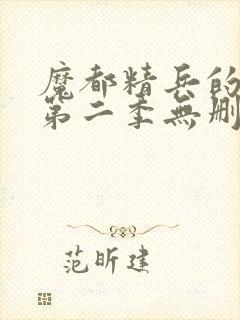 魔都精兵的
第二季無刪
范昕建